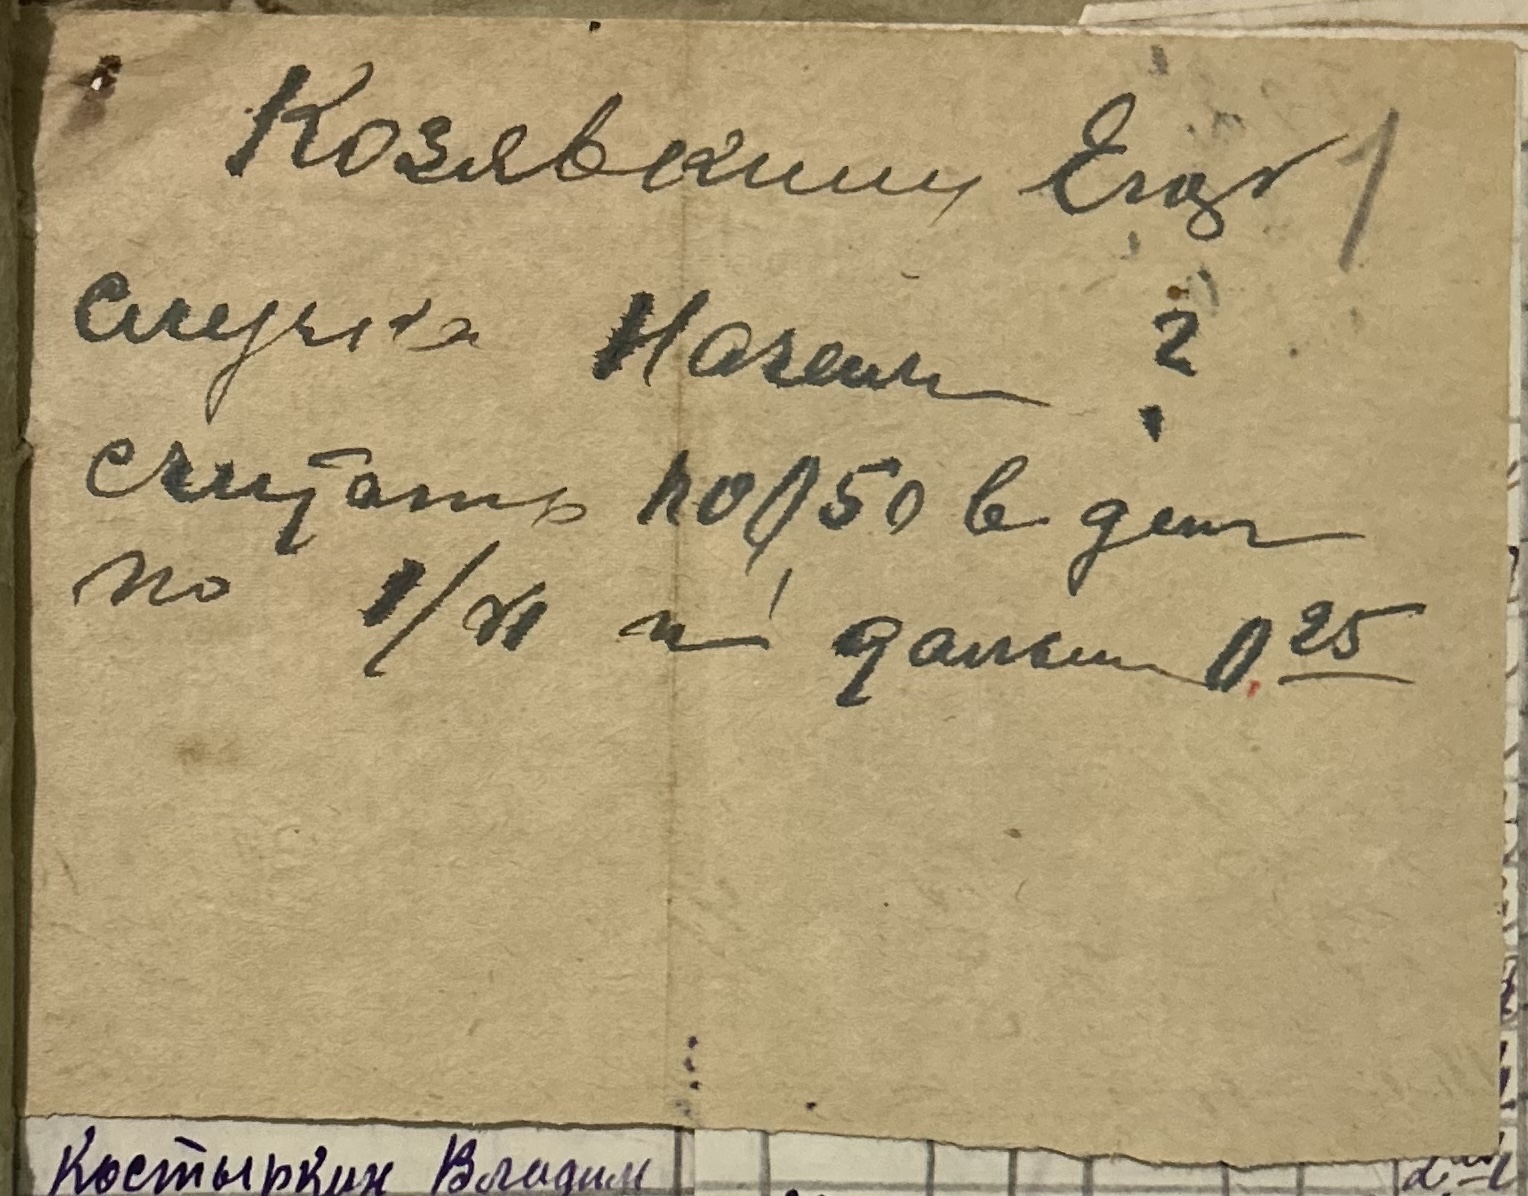 Козявкину Егор 1
случка Назем 2
считать по 0,50 в день
по 1/XI и дальше 0.25
Костыркин Владим